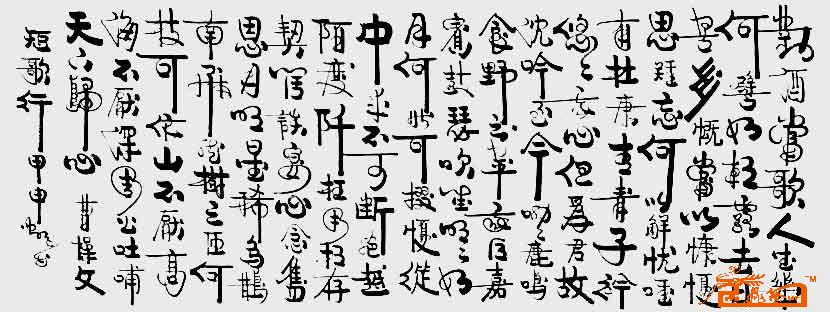 對酒當歌人生幾
何譬如朝露去日
苦多慨當以慷憂
思難忘何以解憂唯
有杜康青青子衿
悠々我心但為君故
沈吟至今呦々鹿鳴
食野之苹我有嘉
賓鼓瑟吹笙明々如
月何時可掇憂從
中來不可斷絕越
陌度阡枉用相存
契闊談宴心念舊
恩月明星稀烏鵲
南飛繞樹三匝何
枝可依山不厭高
海不厭深周公吐哺
天下歸心 曹操文
短歌行 甲申